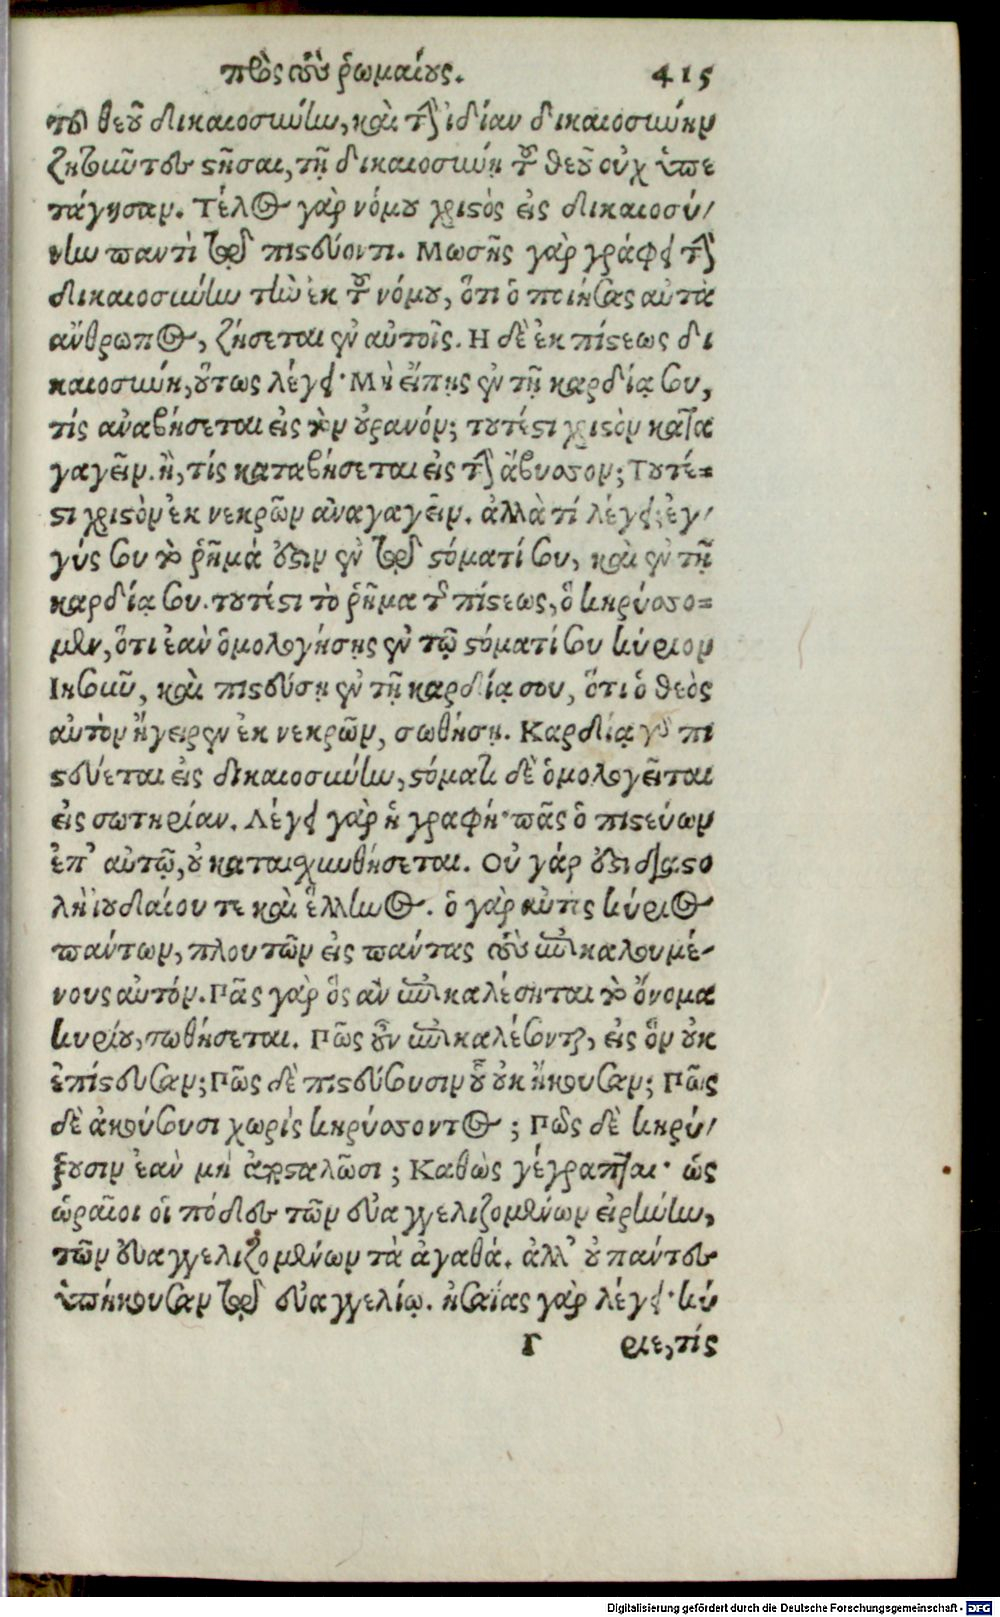 πρὸς τοὺς ῥωμαίους. 415
τοῦ θεοῦ δικαιοσύνην, καὶ τὴν ἰδίαν δικαιοσύνην
ζητοῦντες στῆσαι, τῇ δικαιοσύνῃ τοῦ θεοῦ οὐχ ὑπε
τάγησαν. Τέλος γὰρ νόμου χριστὸς εἰς δικαιοσύ/
νην παντὶ τῷ πιστεύοντι. Μωσῆς γὰρ γράφει τὴν
δικαιοσύνην τὴν ἐκ τοῦ νόμου, ὅτι ὁ ποιήσας αὐτὰ
ἄνθρωπος, ζήσεται ἐν αὐτοῖς. Η δὲ ἐκ πίστεως δι
καιοσύνη, οὕτως λέγει· Μὴ εἴπῃς ἐν τῇ καρδίᾳ σου,
τίς ἀναβήσεται εἰς τὸν οὐρανόν; τουτέστι χριστὸν κατα
γαγεῖν. ἢ, τίς καταβήσεται εἰς τὴν ἄβυσσον; Τουτέ=
στι χριστὸν ἐκ νεκρῶν ἀναγαγεῖν. ἀλλὰ τί λέγει; ἐγ/
γύς σου τὸ ῥῆμά ἐστιν ἐν τῷ στόματί σου, καὶ ἐν τῇ
καρδίᾳ σου. τουτέστι τὸ ῥῆμα τῆς πίστεως, ὃ κηρύσσο=
μεν, ὅτι ἐὰν ὁμολογήσῃς ἐν τῷ στόματί σου κύριον
Ιησοῦν, καὶ πιστεύσῃ ἐν τῇ καρδίᾳ σου, ὅτι ὁ θεὸς
αὐτὸν ἤγειρεν ἐκ νεκρῶν, σωθήσῃ. Καρδίᾳ γὰρ πι
στεύεται εἰς δικαιοσύνην, στόματι δὲ ὁμολογεῖται
εἰς σωτηρίαν. Λέγει γὰρ ἡ γραφή· πᾶς ὁ πιστεύων
ἐπ' αὐτῷ, οὐ καταισχυνθήσεται. Οὐ γάρ ἐστι διαστο
λὴ ἰουδαίου τε καὶ ἕλληνος. ὁ γὰρ αὐτὸς κύριος
πάντων, πλουτῶν εἰς πάντας τοὺς ἐπικαλουμέ-
νους αὐτόν. Πᾶς γὰρ ὃς ἂν ἐπικαλέσηται τὸ ὄνομα
κυρίου, σωθήσεται. Πῶς οὖν ἐπικαλέσονται, εἰς ὃν οὐκ
ἐπίστευσαν; Πῶς δὲ πιστεύσουσιν οὗ οὐκ ἤκουσαν; Πῶς
δὲ ἀκούσουσι χωρὶς κηρύσσοντος; Πῶς δὲ κηρύ/
ξουσιν ἐὰν μὴ ἀποσταλῶσι; Καθὼς γέγραπται· ὡς
ὡραῖοι οἱ πόδες τῶν εὐαγγελιζομένων εἰρήνην,
τῶν εὐαγγελιζομένων τὰ ἀγαθά. ἀλλ' οὐ πάντες
ὑπήκουσαν τῷ εὐαγγελίῳ. ἡσαΐας γὰρ λέγει· κύ
Γ ριε, τίς
Digitalisierung gefördert durch die Deutsche Forschungsgemeinschaft - DFG